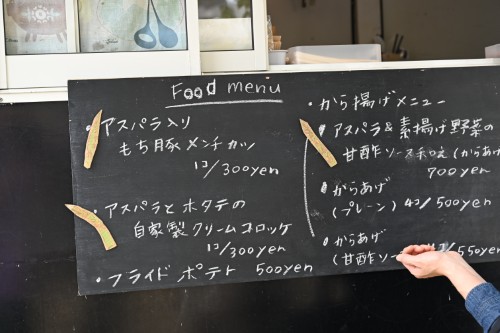 Food menu
・アスパラ入り
もち豚メンチカツ
1コ/300yen
・アスパラとホタテの
自家製クリームコロッケ
1コ/300yen
・フライドポテト 500yen
・から揚げメニュー
・アスパラ&素揚げ野菜の
甘酢ソース和え(からあげ
700yen
・からあげ
(プレーン) 4コ/500yen
・からあげ
(甘酢ソー /550yen